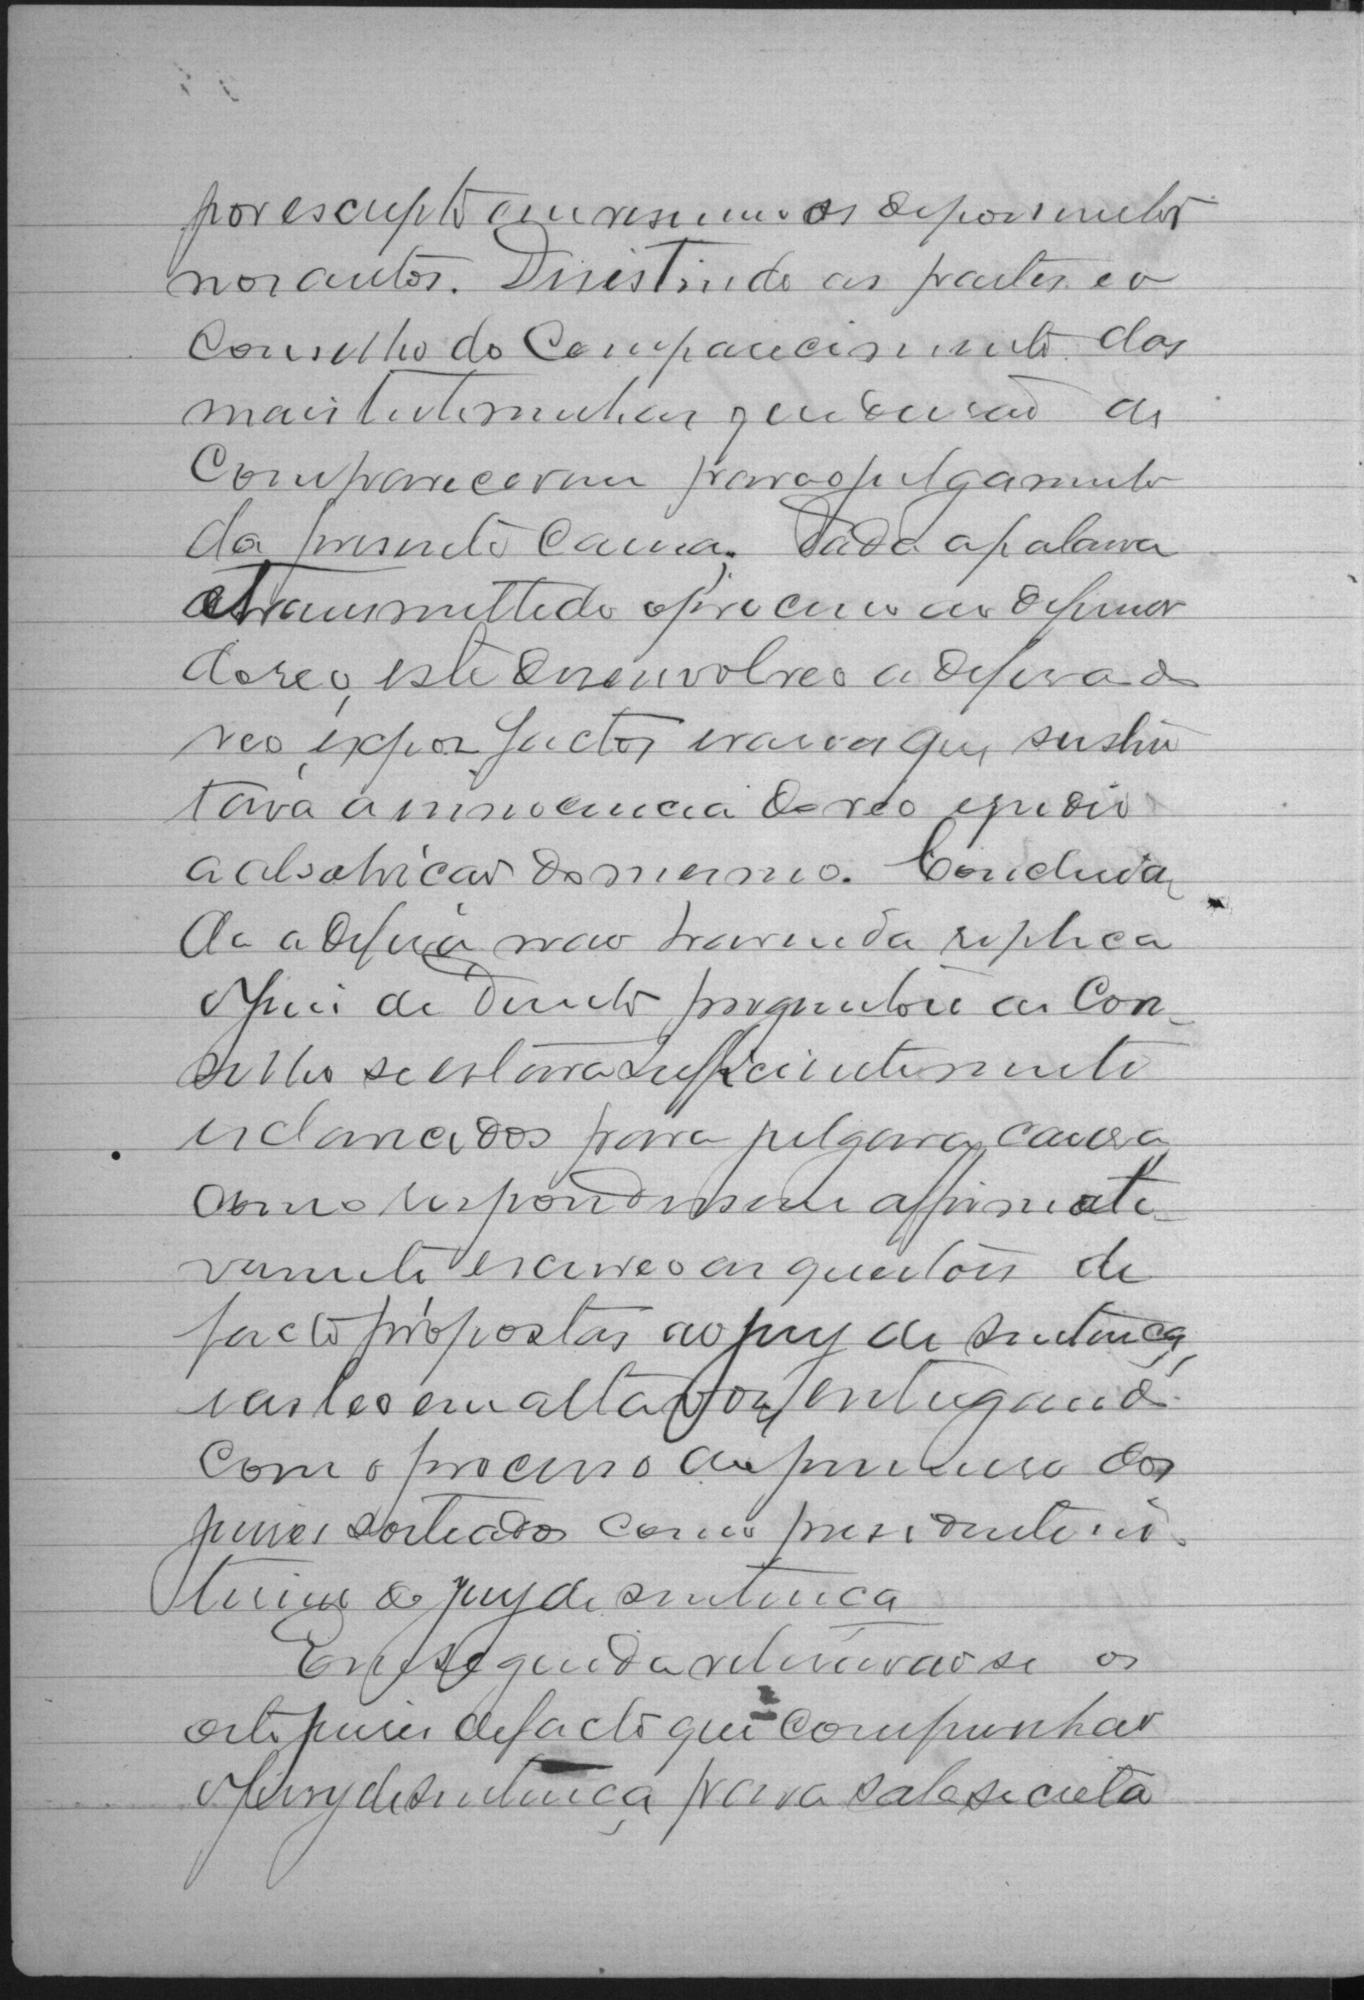 por escripto em resumo os depoimentos
nos autos. Disistindo as partes e o
Conselho do comparecimento das
mais testemunhas que deixarão de
comparecerem para o julgamento
da presente causa. Dada a palavra
e transmettido o processo ao defensor
do reo, este desenvolveo a defesa do
reo, expoz factos e razoes que susten
tava a innocencia do reo e pedio
a absolvicão do mesmo. Concluida
de a defesa não havendo replica
o Juiz de Direito perguntou ao Con-
selho se estava sufficientemente
esclarecidos para julgar a causa
como respondessem affirmati-
vamente escreveo as questões de
facto propostas ao jury de sentença,
e as leo em alta voz, entregando
com o processo ao primeiro dos
juises sorteados como presidente in-
terino do jury de sentença
Em seguida retirarão se os
sete juises de facto que compunhão
o Jury de sentença para sala secreta